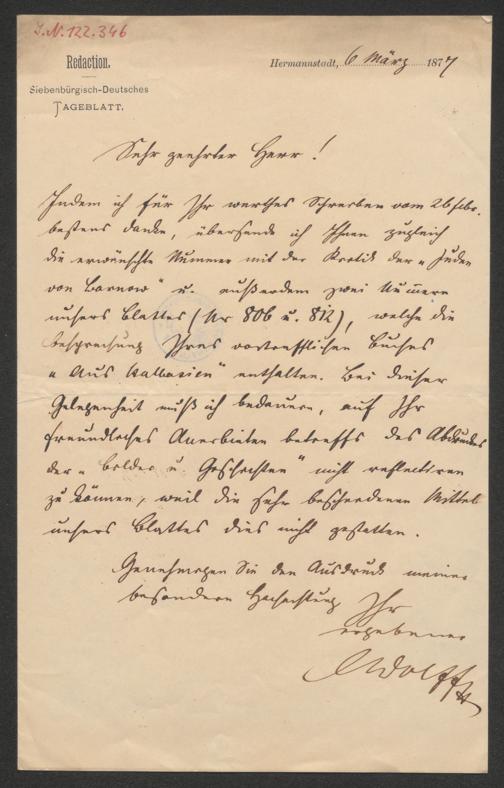 J.N. 122.346
Redaction.
Siebenbürgisch-Deutsches
TAGEBLATT.
Hermannstadt, 6 März 1877
Sehr geehrter Herr!
Indem ich für Ihr werthes Schreiben vom 26 Febr.
bestens danke, übersende ich Ihnen zugleich
die erwünschte Nummer mit der Kritik der „Juden
von Barnow" u. außerdem zwei Nummern
unsers Blattes (Nr 806 u. 812), welche die
Besprechung Ihres vortrefflichen Buches
„Aus Halbasien" enthalten. Bei dieser
Gelegenheit muß ich bedauern, auf Ihr
freundliches Anerbieten betreffs des Abdruckes
der „Bilder u. Geschichten" nicht reflectiren
zu können, weil die sehr bescheidenen Mittel
unsers Blattes dies nicht gestatten.
Genehmigen Sie den Ausdruck meiner
besondern Hochachtung Ihr
ergebener